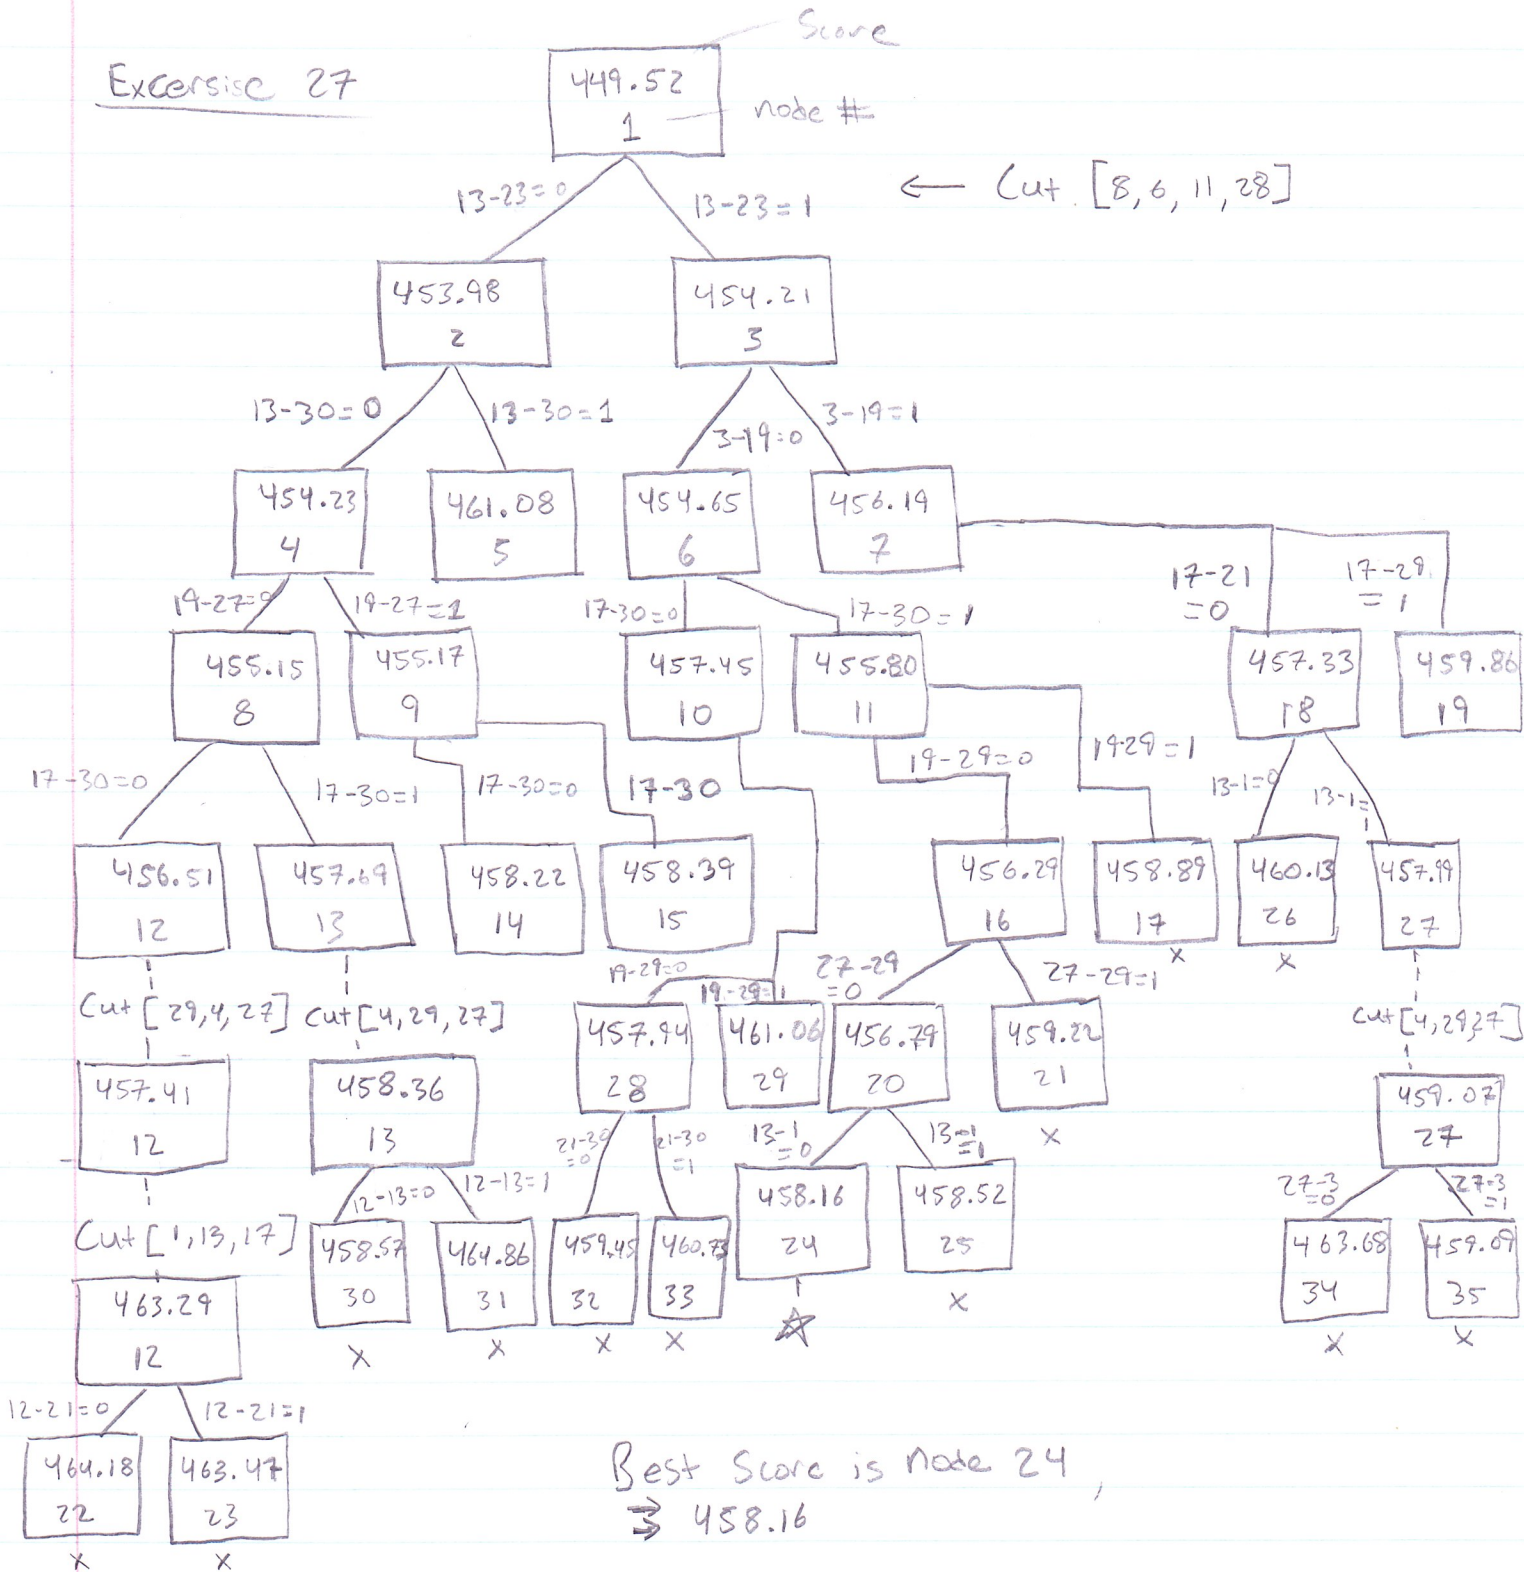 Score
Excersise 27
449.52
node #
1
← Cut [8, 6, 11, 28]
13-23=0
13-23=1
453.98
2
454.21
3
13-30=0
13-30=1
3-19=0
3-19=1
454.23
4
461.08
5
454.65
6
456.19
7
19-27=0
19-27=1
17-30=0
17-30=1
17-21
=0
17-29
=1
455.15
8
455.17
9
457.45
10
455.80
11
457.33
18
459.86
19
17-30=0
17-30=1
17-30=0
17-30
19-29=0
19-29=1
13-1=0
13-1=
1
456.51
12
457.69
13
458.22
14
458.39
15
456.29
16
458.89
17
x
460.13
26
x
457.99
27
Cut [29,4,27]
Cut [4,29,27]
19-29=0
19-29=1
27-29
=0
27-29=1
Cut [4,29,27]
457.41
12
458.36
13
457.94
28
461.06
29
456.79
20
459.22
21
x
459.07
27
Cut [1,13,17]
12-13=0
12-13=1
21-30
=0
21-30
=1
13-1
=0
13-1
=1
27-3
=0
27-3
=1
463.29
12
458.57
30
x
464.86
31
x
459.45
32
x
460.73
33
x
458.16
24
458.52
25
x
463.68
34
x
459.09
35
x
12-21=0
12-21=1
464.18
22
x
463.47
23
x
Best Score is node 24,
⇒ 458.16